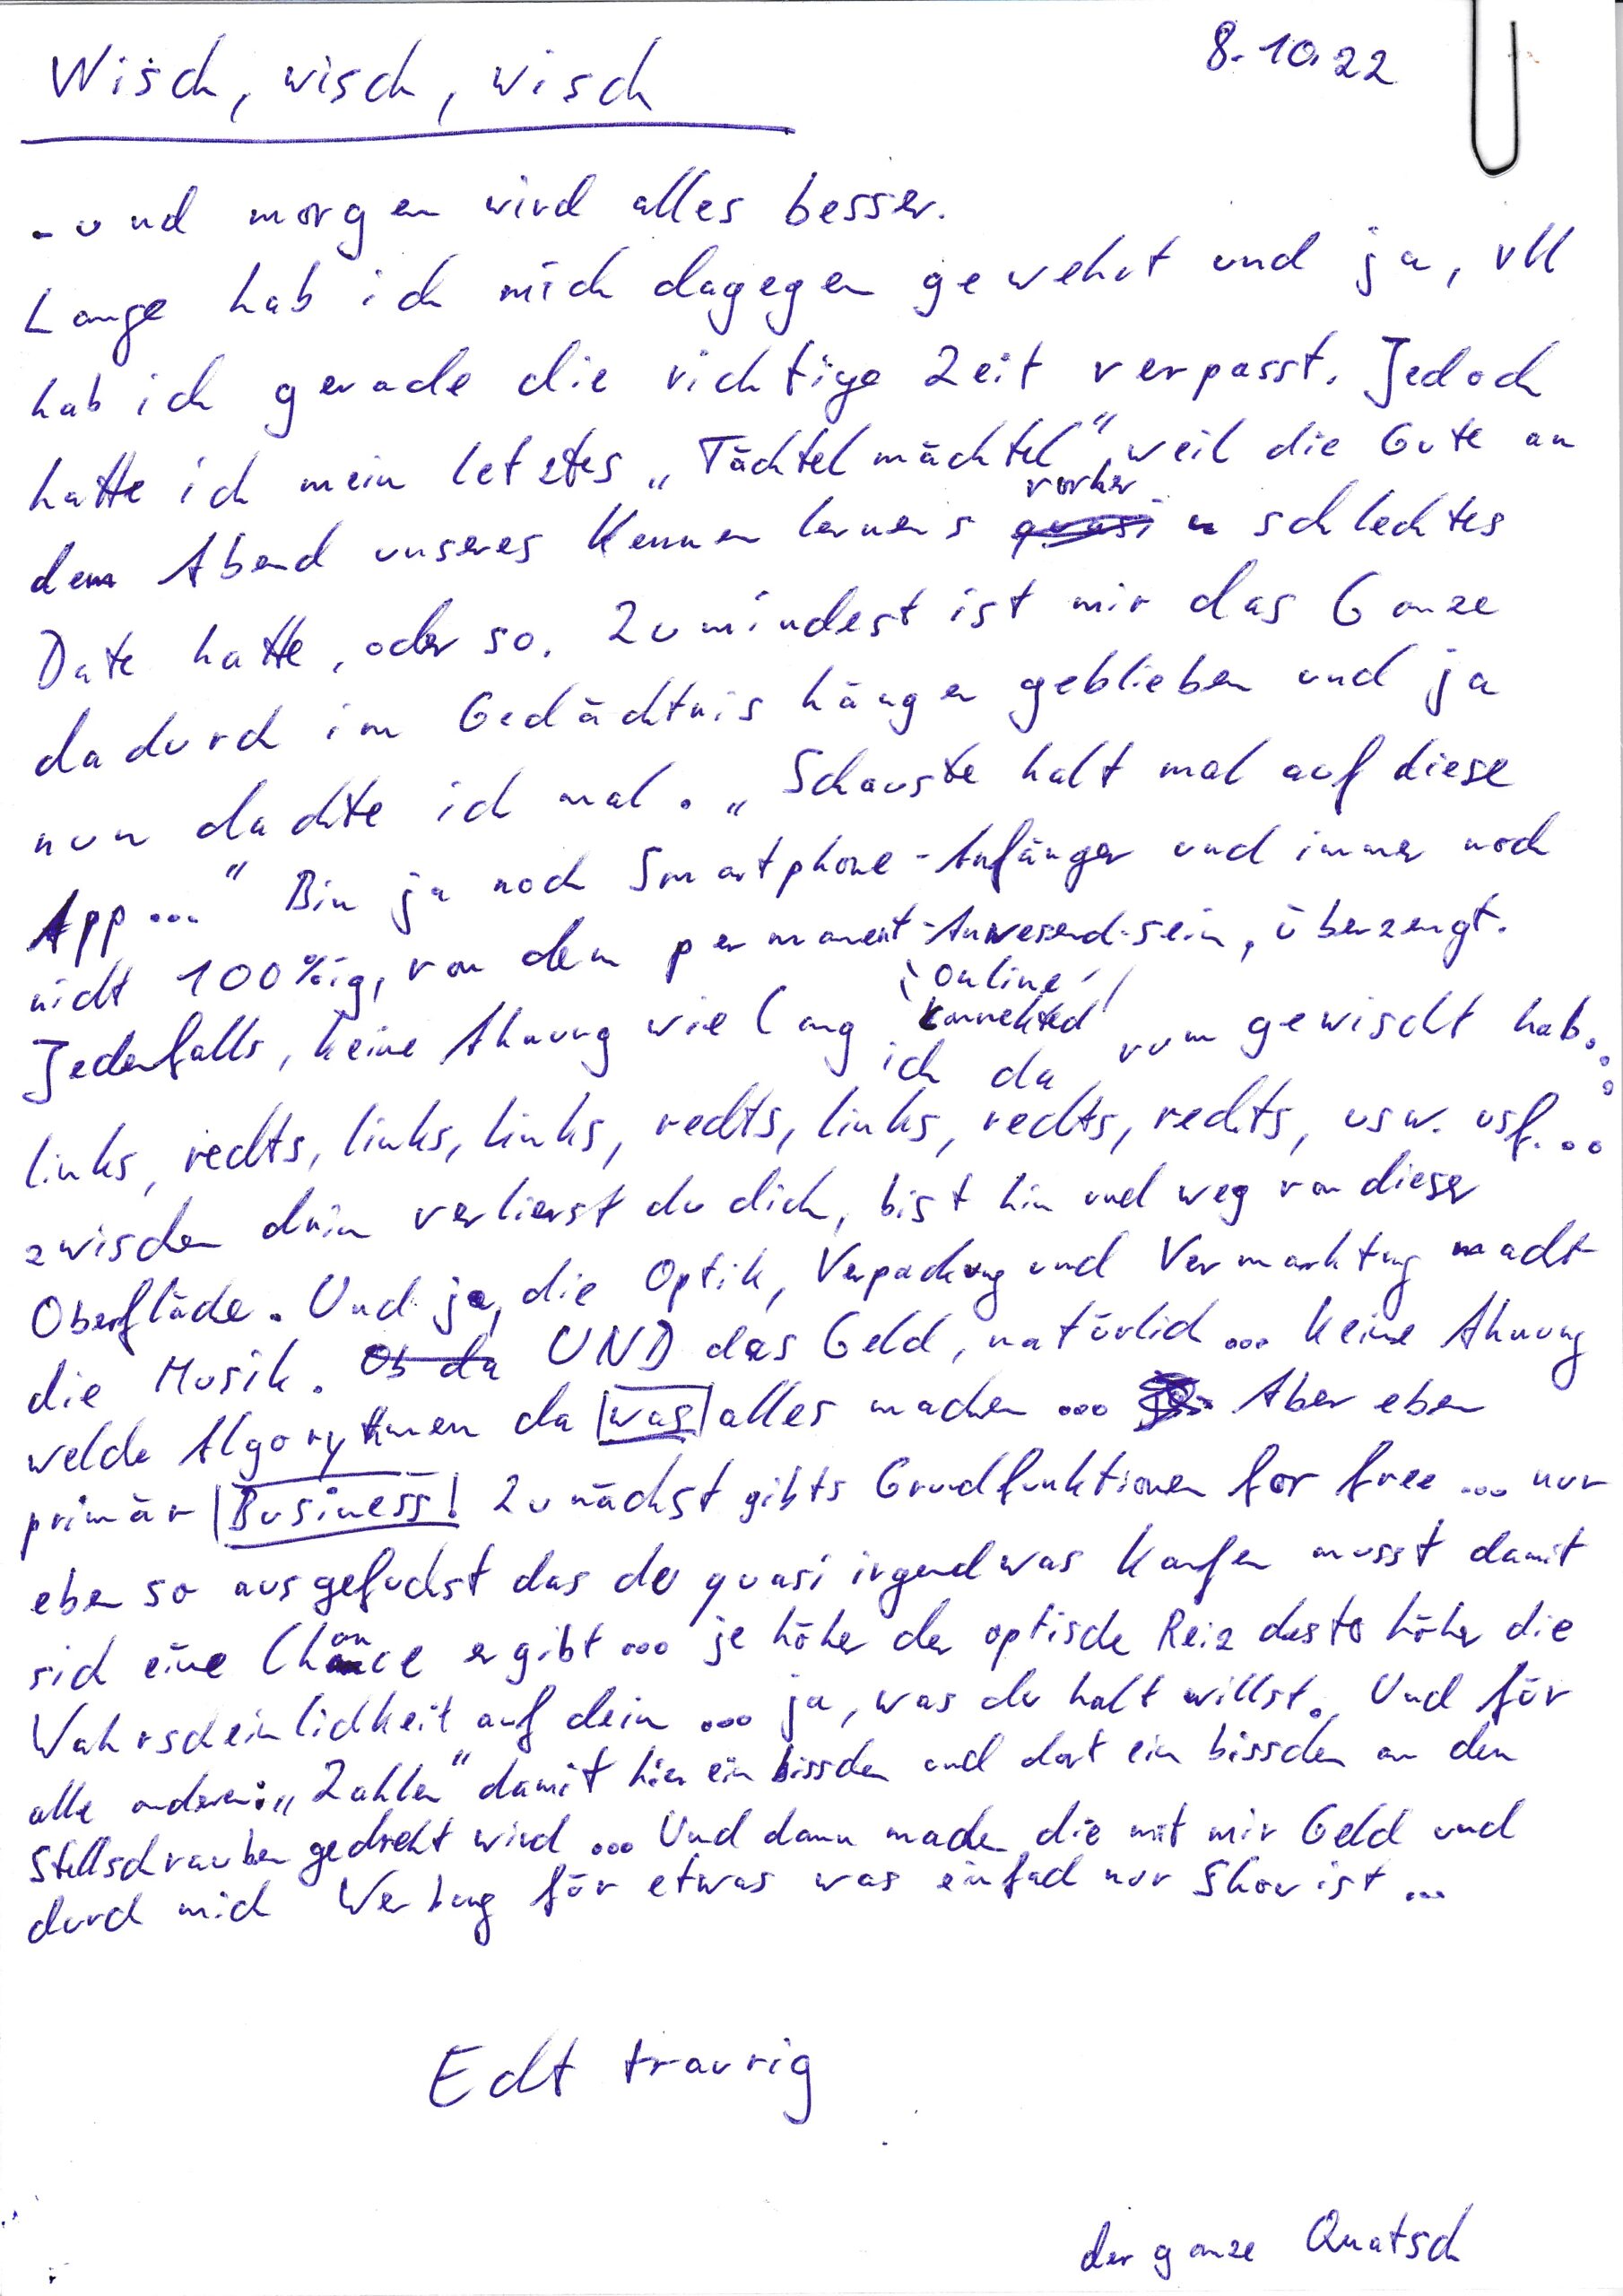 Wisch, wisch, wisch
8.10.22
- und morgen wird alles besser.
Lange hab ich mich dagegen gewehrt und ja, vll
hab ich gerade die richtige Zeit verpasst. Jedoch
hatte ich mein letztes „Tächtelmächtel“, weil die Gute an
vorher
dem Abend unseres Kennenlernens quasi n schlechtes
Date hatte, oder so. Zumindest ist mir das Ganze
dadurch im Gedächtnis hängen geblieben und ja
nun dachte ich mal. „Schauste halt mal auf diese
App..." Bin ja noch Smartphone-Anfänger und immer noch
nicht 100%ig, von dem permanent-Anwesend-sein, überzeugt.
'online'
Jedenfalls, keine Ahnung wie lang konnekted ich da rum gewischt hab...
links, rechts, links, links, rechts, links, rechts, rechts, usw. usf...
zwischen drin verlierst du dich, bist hin und weg von dieser
Oberfläche. Und ja, die Optik, Verpackung und Vermarktung macht
die Musik. Ob da UND das Geld, natürlich ... keine Ahnung
welche Algorythmen da was alles machen ... Aber eben
primär Business! Zunächst gibts Grundfunktionen for free ... nur
eben so ausgefuchst das du quasi irgendwas kaufen musst damit
sich eine Chance ergibt ... je höher der optische Reiz desto höher die
Wahrscheinlichkeit auf dein ... ja, was du halt willst. Und für
alle anderen: „Zahlen" damit hier ein bisschen und dort ein bisschen an den
Stellschrauben gedreht wird ... Und dann machen die mit mir Geld und
durch mich Werbung für etwas was einfach nur Show ist ...
Echt traurig
der ganze Quatsch